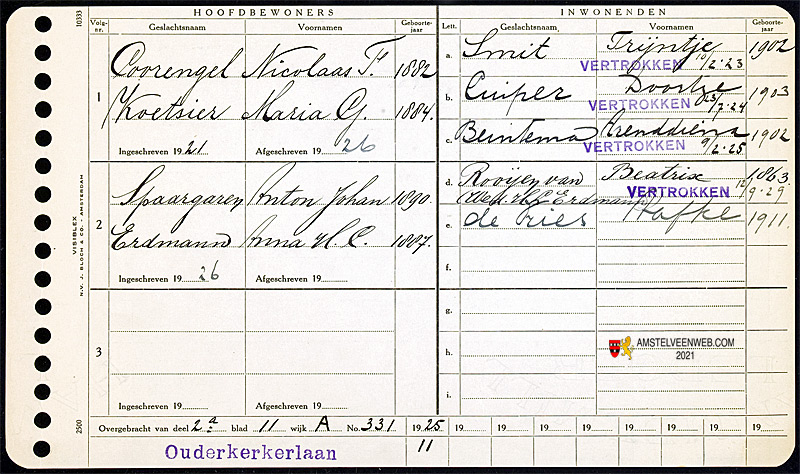 HOOFDBEWONERS
Volg-nr. Geslachtsnaam Voornamen Geboorte-jaar
1
Coorengel Nicolaas Th 1882
Koetsier Maria G. 1884.
Ingeschreven 1921 Afgeschreven 1926
2
Spaargaren Anton Johan 1890.
Erdmann Anna H. C. 1887.
Ingeschreven 1926 Afgeschreven 19
3
Ingeschreven 19 Afgeschreven 19
INWONENDEN
Lett. Geslachtsnaam Voornamen Geboorte-jaar
a. Smit Trijntje 1902
VERTROKKEN 10/2·23
b. Cuiper Doortze 1903
VERTROKKEN 23/7·24
c. Beintema Arenddiena 1902
VERTROKKEN 9/2·25
d. Rooijen van Beatrix 1863.
(Wed. H.C. Erdmann) VERTROKKEN 12/9·29
e. de Vries 1911.
f.
g.
h.
i.
AMSTELVEENWEB.COM
2021
Overgebracht van deel 2a blad 11 wijk A No. 331 1925 19 19 19 19 19 19 19 19
Ouderkerkerlaan 11
10333
VISIBLEX
N.V. J. BLOCH & CO. - AMSTERDAM
2500